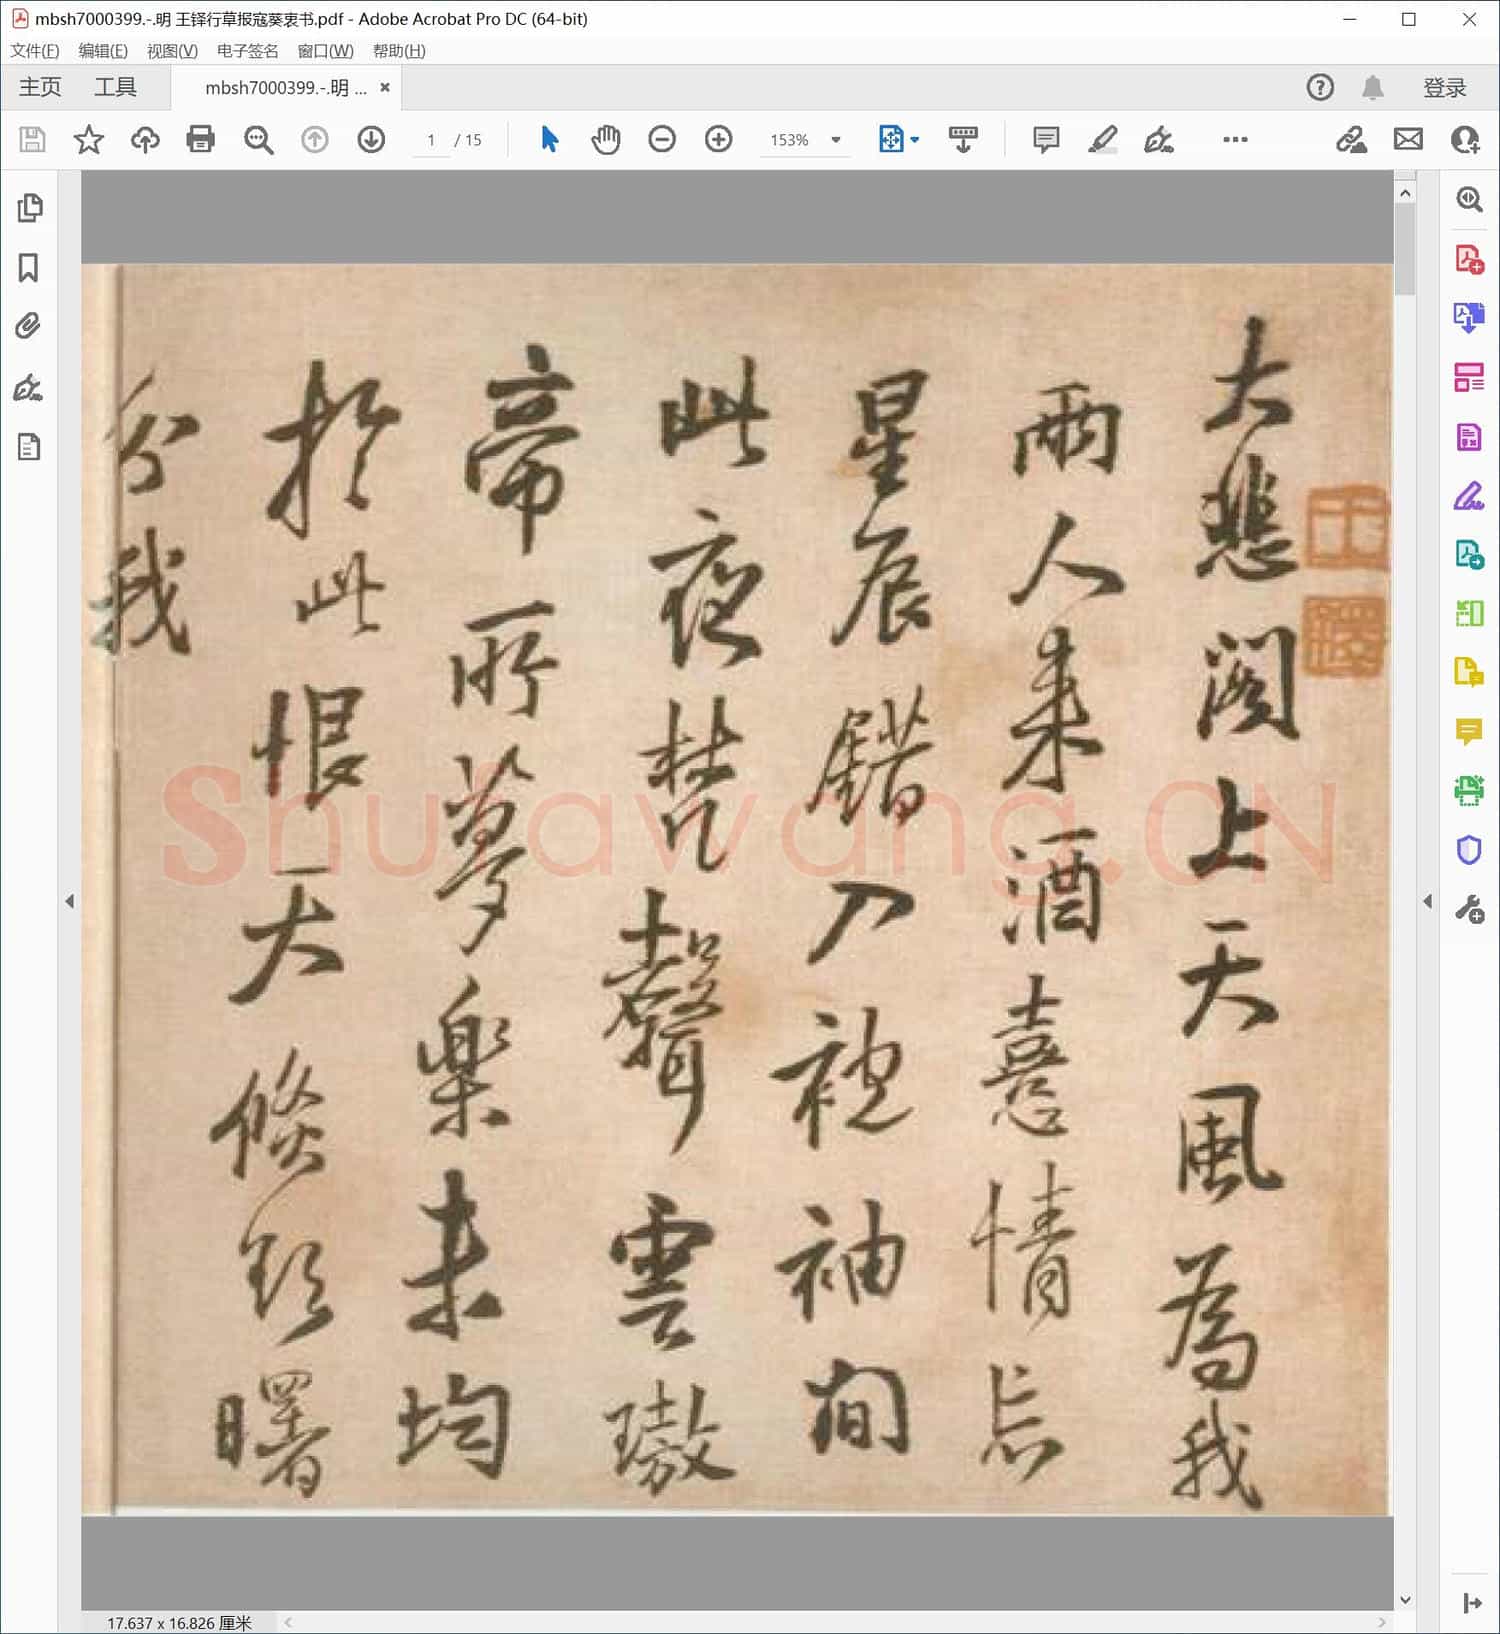 mbsh7000399.-.明 王铎行草报寇葵衷书.pdf - Adobe Acrobat Pro DC (64-bit)
文件(F) 编辑(E) 视图(V) 电子签名 窗口(W) 帮助(H)
主页 工具 mbsh7000399.-.明 ... 登录
1 / 15 153%
大悲阁上天風為我
兩人来酒意情忘
星辰錯入袍袖間
此夜梵聲雲璈
帝所夢樂未均
於此恨天倏欲曙
分我
Shufawang.CN
17.637 x 16.826 厘米